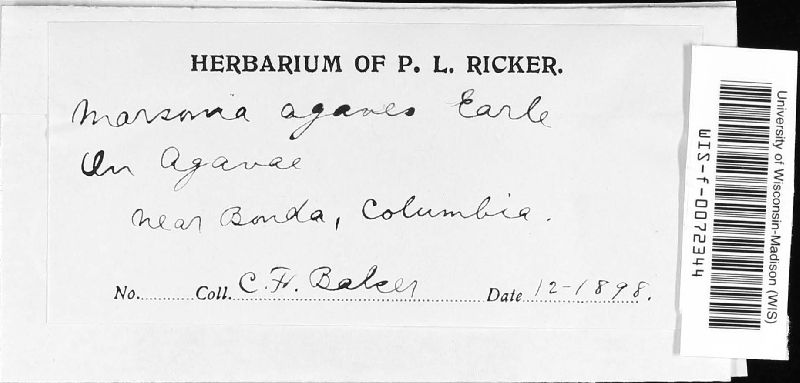 HERBARIUM OF P. L. RICKER.
Marsonia agaves Earle
On Agavae
near Bonda, Columbia.
No. Coll. C. F. Baker Date 12-1898.
University of Wisconsin-Madison (WIS)
WIS-f-0072344